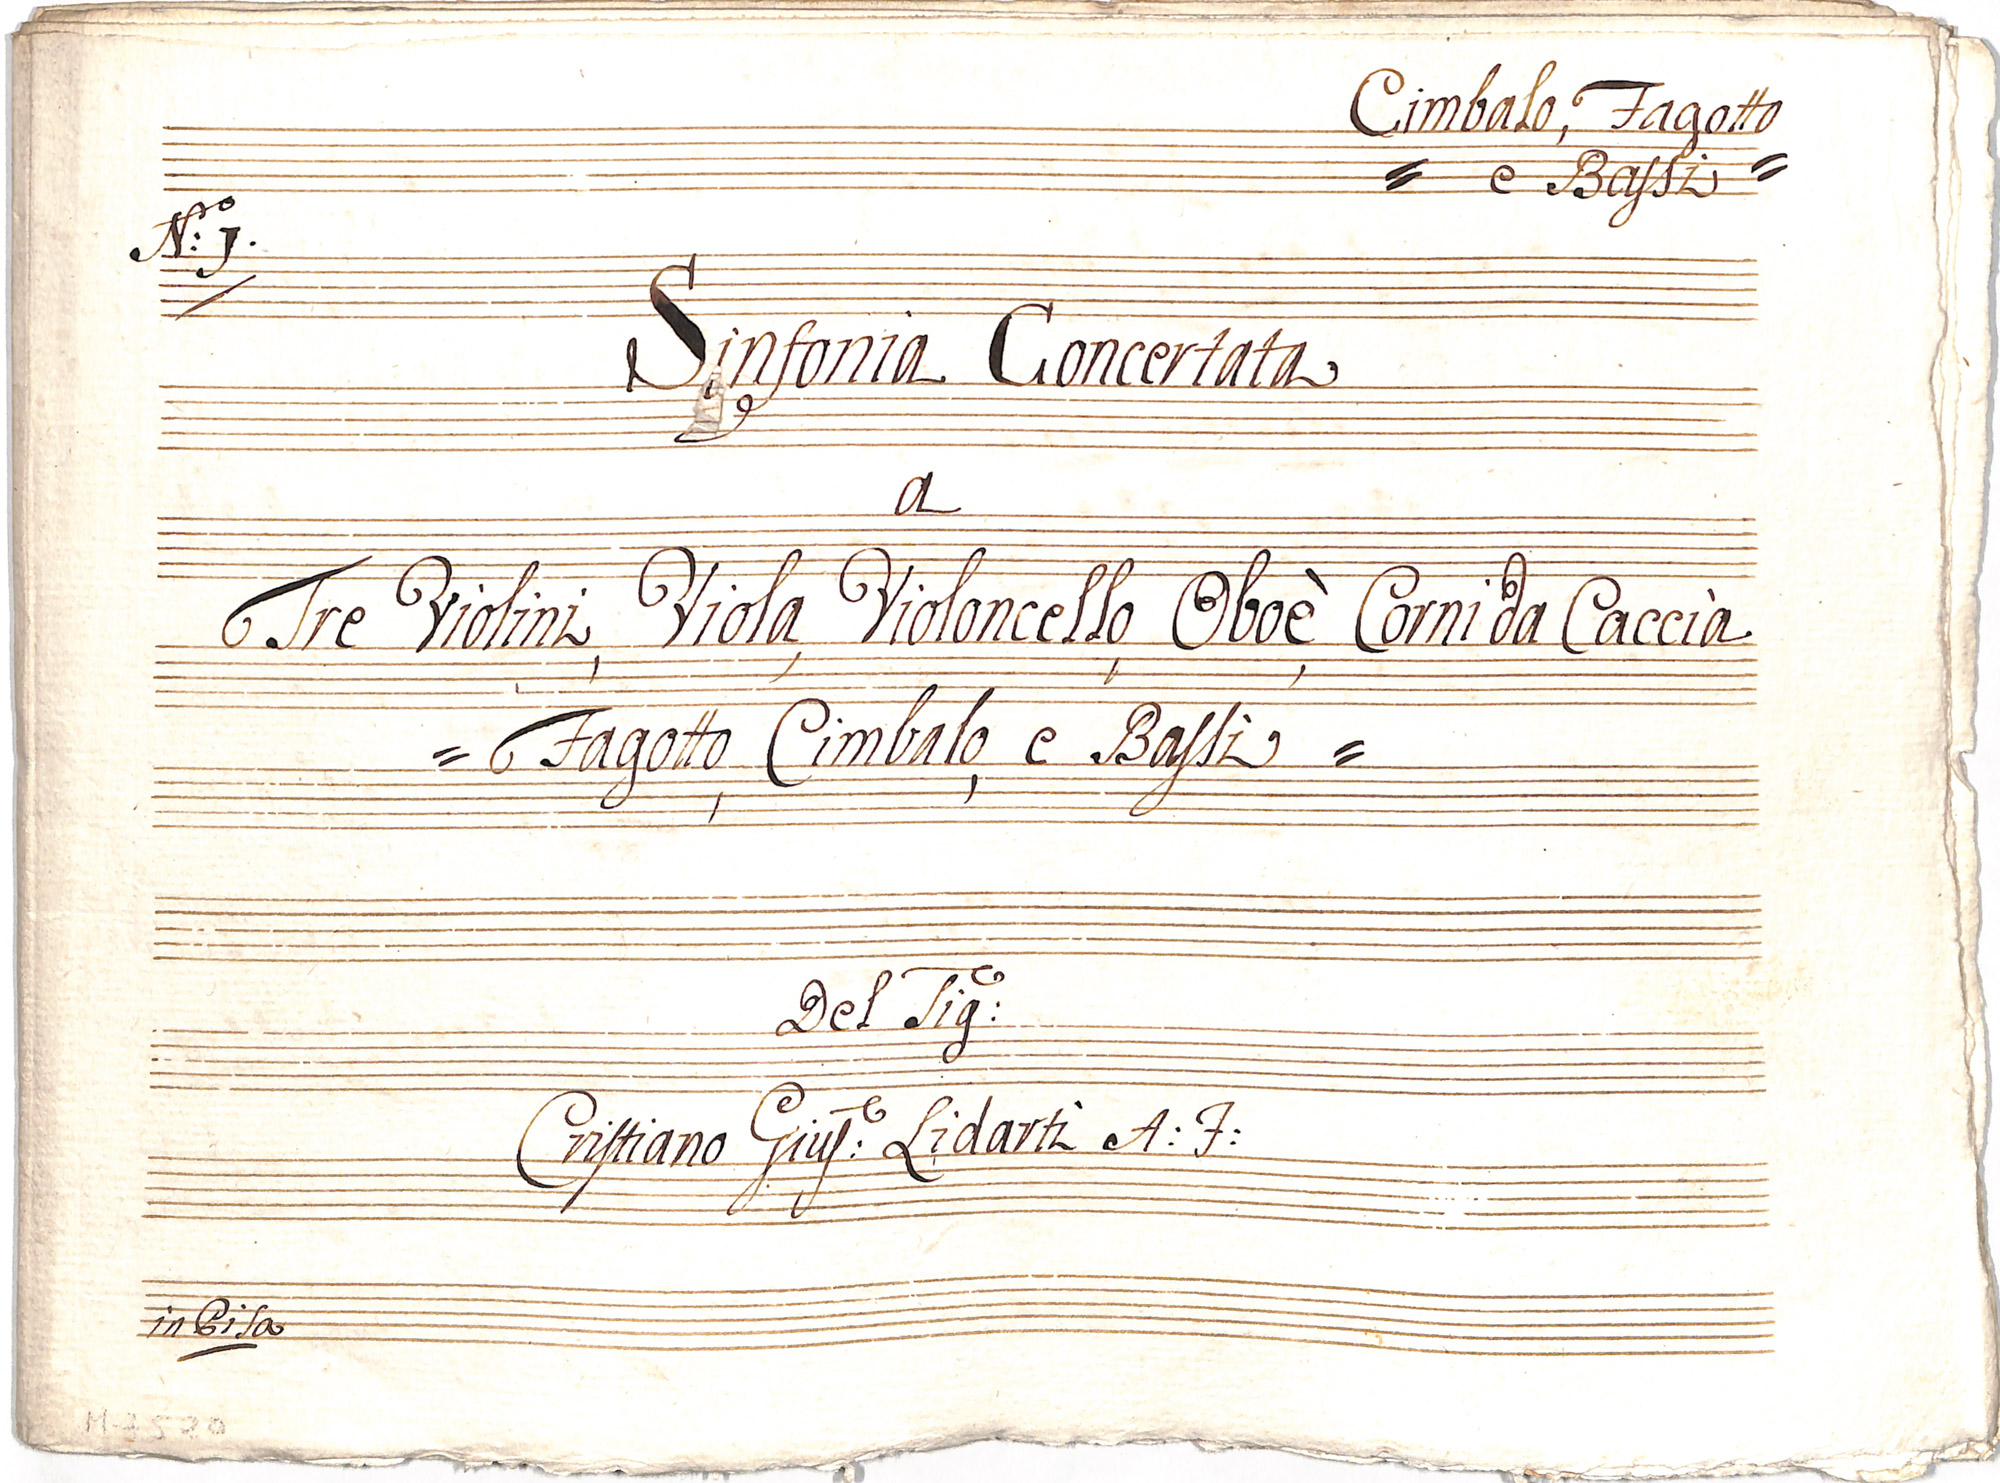 Cimbalo, Fagotto
= e Bassi =
N.º 1.
Sinfonia Concertata
a
Tre Violini, Viola, Violoncello, Oboè, Corni da Caccia
= Fagotto, Cimbalo, e Bassi =
Del Sig.e:
Cristiano Gius.e: Lidarti A: F:
in Pisa